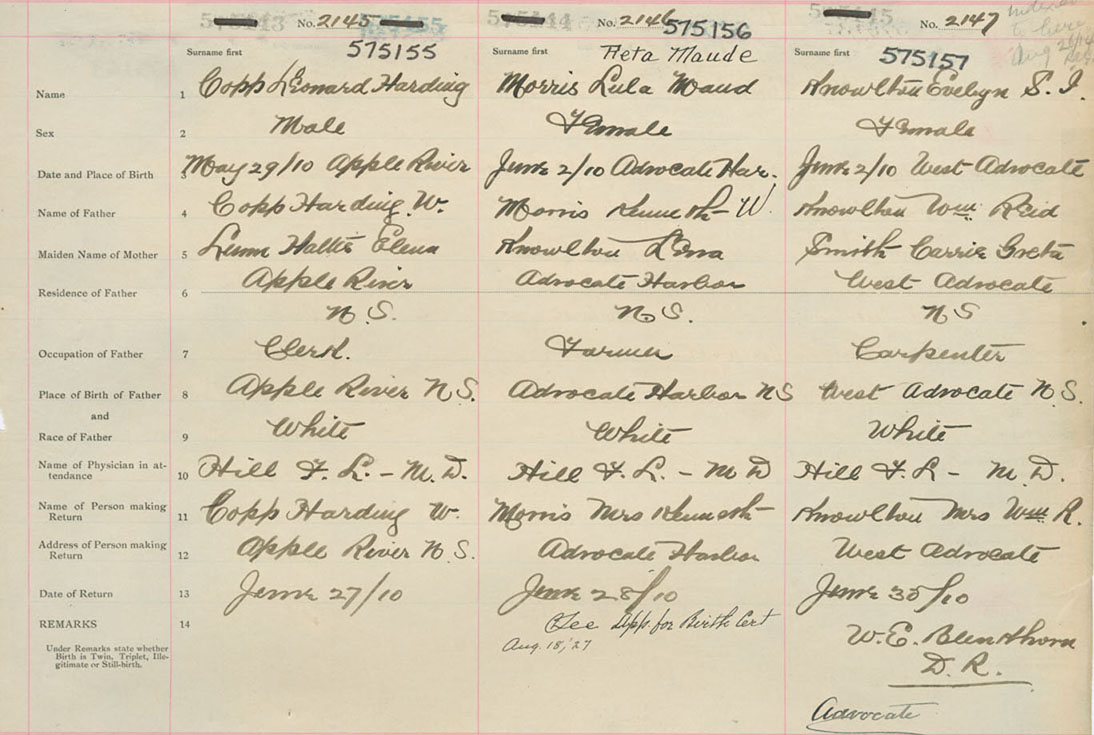 No. 2145 No. 2146 No. 2147
575155 575156 575157
Surname first Surname first Reta Maude Surname first
Name 1 Copp Leonard Harding Morris Lula Maud Knowlton Evelyn S. I.
Sex 2 Male Female Female
Date and Place of Birth 3 May 29/10 Apple River June 2/10 Advocate Har. June 2/10 West Advocate
Name of Father 4 Copp Harding W. Morris Kenneth W Knowlton Wm Reid
Maiden Name of Mother 5 Lunn Hattie Elena Knowlton Lena Smith Carrie Greta
Residence of Father 6 Apple River Advocate Harbor West Advocate
N. S. N. S. N S
Occupation of Father 7 Clerk. Farmer Carpenter
Place of Birth of Father 8 Apple River N. S. Advocate Harbor N S West Advocate N. S.
and
Race of Father 9 White White White
Name of Physician in at-
tendance 10 Hill F. L. - M. D. Hill F. L. - M D Hill F. L - M. D.
Name of Person making
Return 11 Copp Harding W. Morris Mrs Kenneth Knowlton Mrs Wm R.
Address of Person making
Return 12 Apple River N. S. Advocate Harbor West Advocate
Date of Return 13 June 27/10 June 28/10 June 30/10
REMARKS 14 See App. for Birth Cert W. E. Blenkhorn
Aug. 18, '27 D. R.
Under Remarks state whether
Birth is Twin, Triplet, Ille-
gitimate or Still-birth.
Advocate